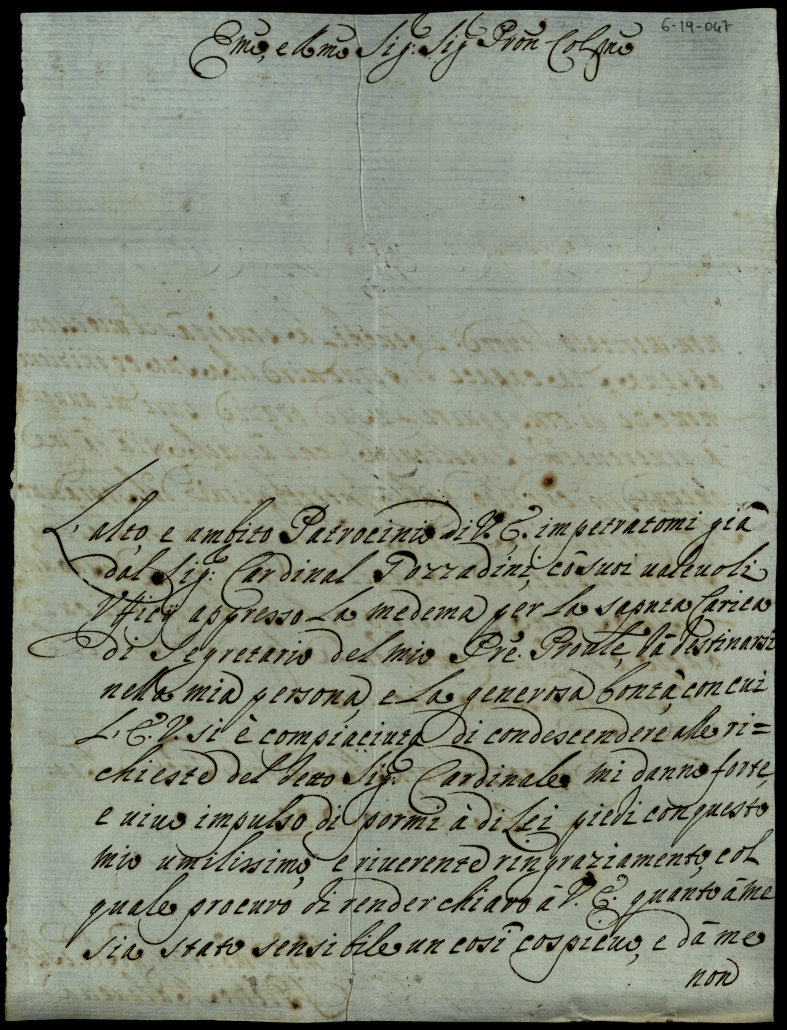 6-19-047
Emõ, e Rmõ Sig.r Sig.r Prõn Colmõ
L'alto, e ambito Patrocinio di V. E. impetratomi già
dal Sig.r Cardinal Pozzadini, cõ suoi ualeuoli
Vfficij appresso La medema per La saputa Carica
di Segretario del mio Prẽ. Prõule, dà destinarsi
nella mia persona, e La generosa bontà, con cui
L'E. V. si è compiaciuta di condescendere alle ri=
chieste del detto Sig.r Cardinale, mi danno forte,
e uiuo impulso di pormi à di Lei piedi con questo
mio umilissimo, e riuerente ringraziamento, col
quale procuro di render chiaro à V. E. quanto à me
sia stato sensibile un così cospicuo, e dà me
non